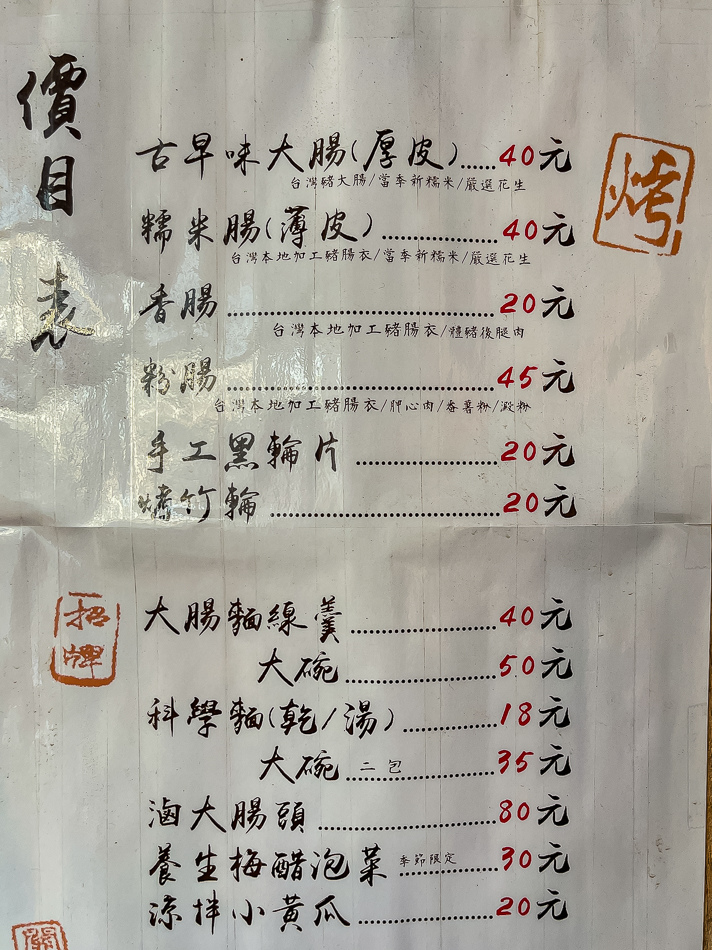 價目表
烤
古早味大腸(厚皮)......40元
台灣豬大腸/當季新糯米/嚴選花生
糯米腸(薄皮)......40元
台灣本地加工豬腸衣/當季新糯米/嚴選花生
香腸......20元
台灣本地加工豬腸衣/體豬後腿肉
粉腸......45元
台灣本地加工豬腸衣/胛心肉/番薯粉/澱粉
手工黑輪片......20元
烤竹輪......20元
招牌
大腸麵線羹......40元
大碗......50元
科學麵(乾/湯)......18元
大碗 二包......35元
滷大腸頭......80元
養生梅醋泡菜 季節限定......30元
涼拌小黃瓜......20元